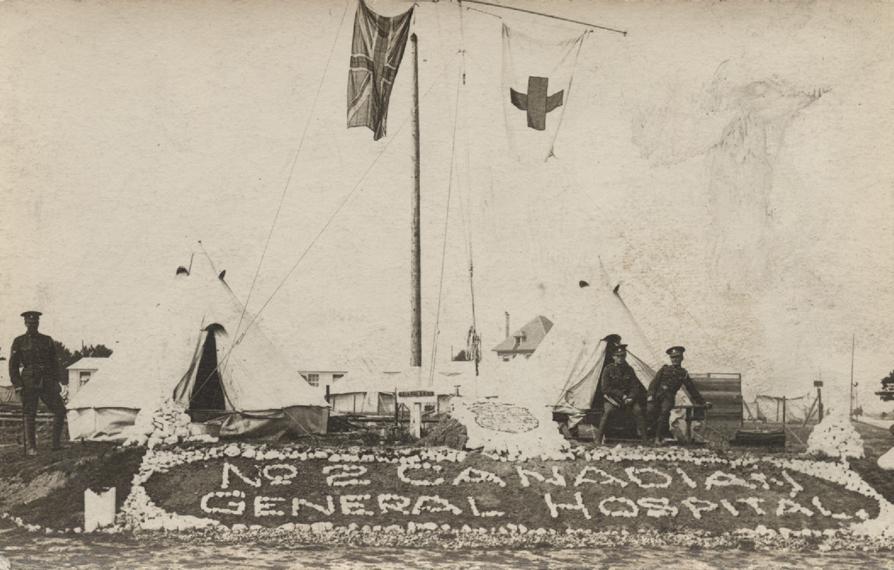 No 2 CANADIAN
GENERAL HOSPITAL